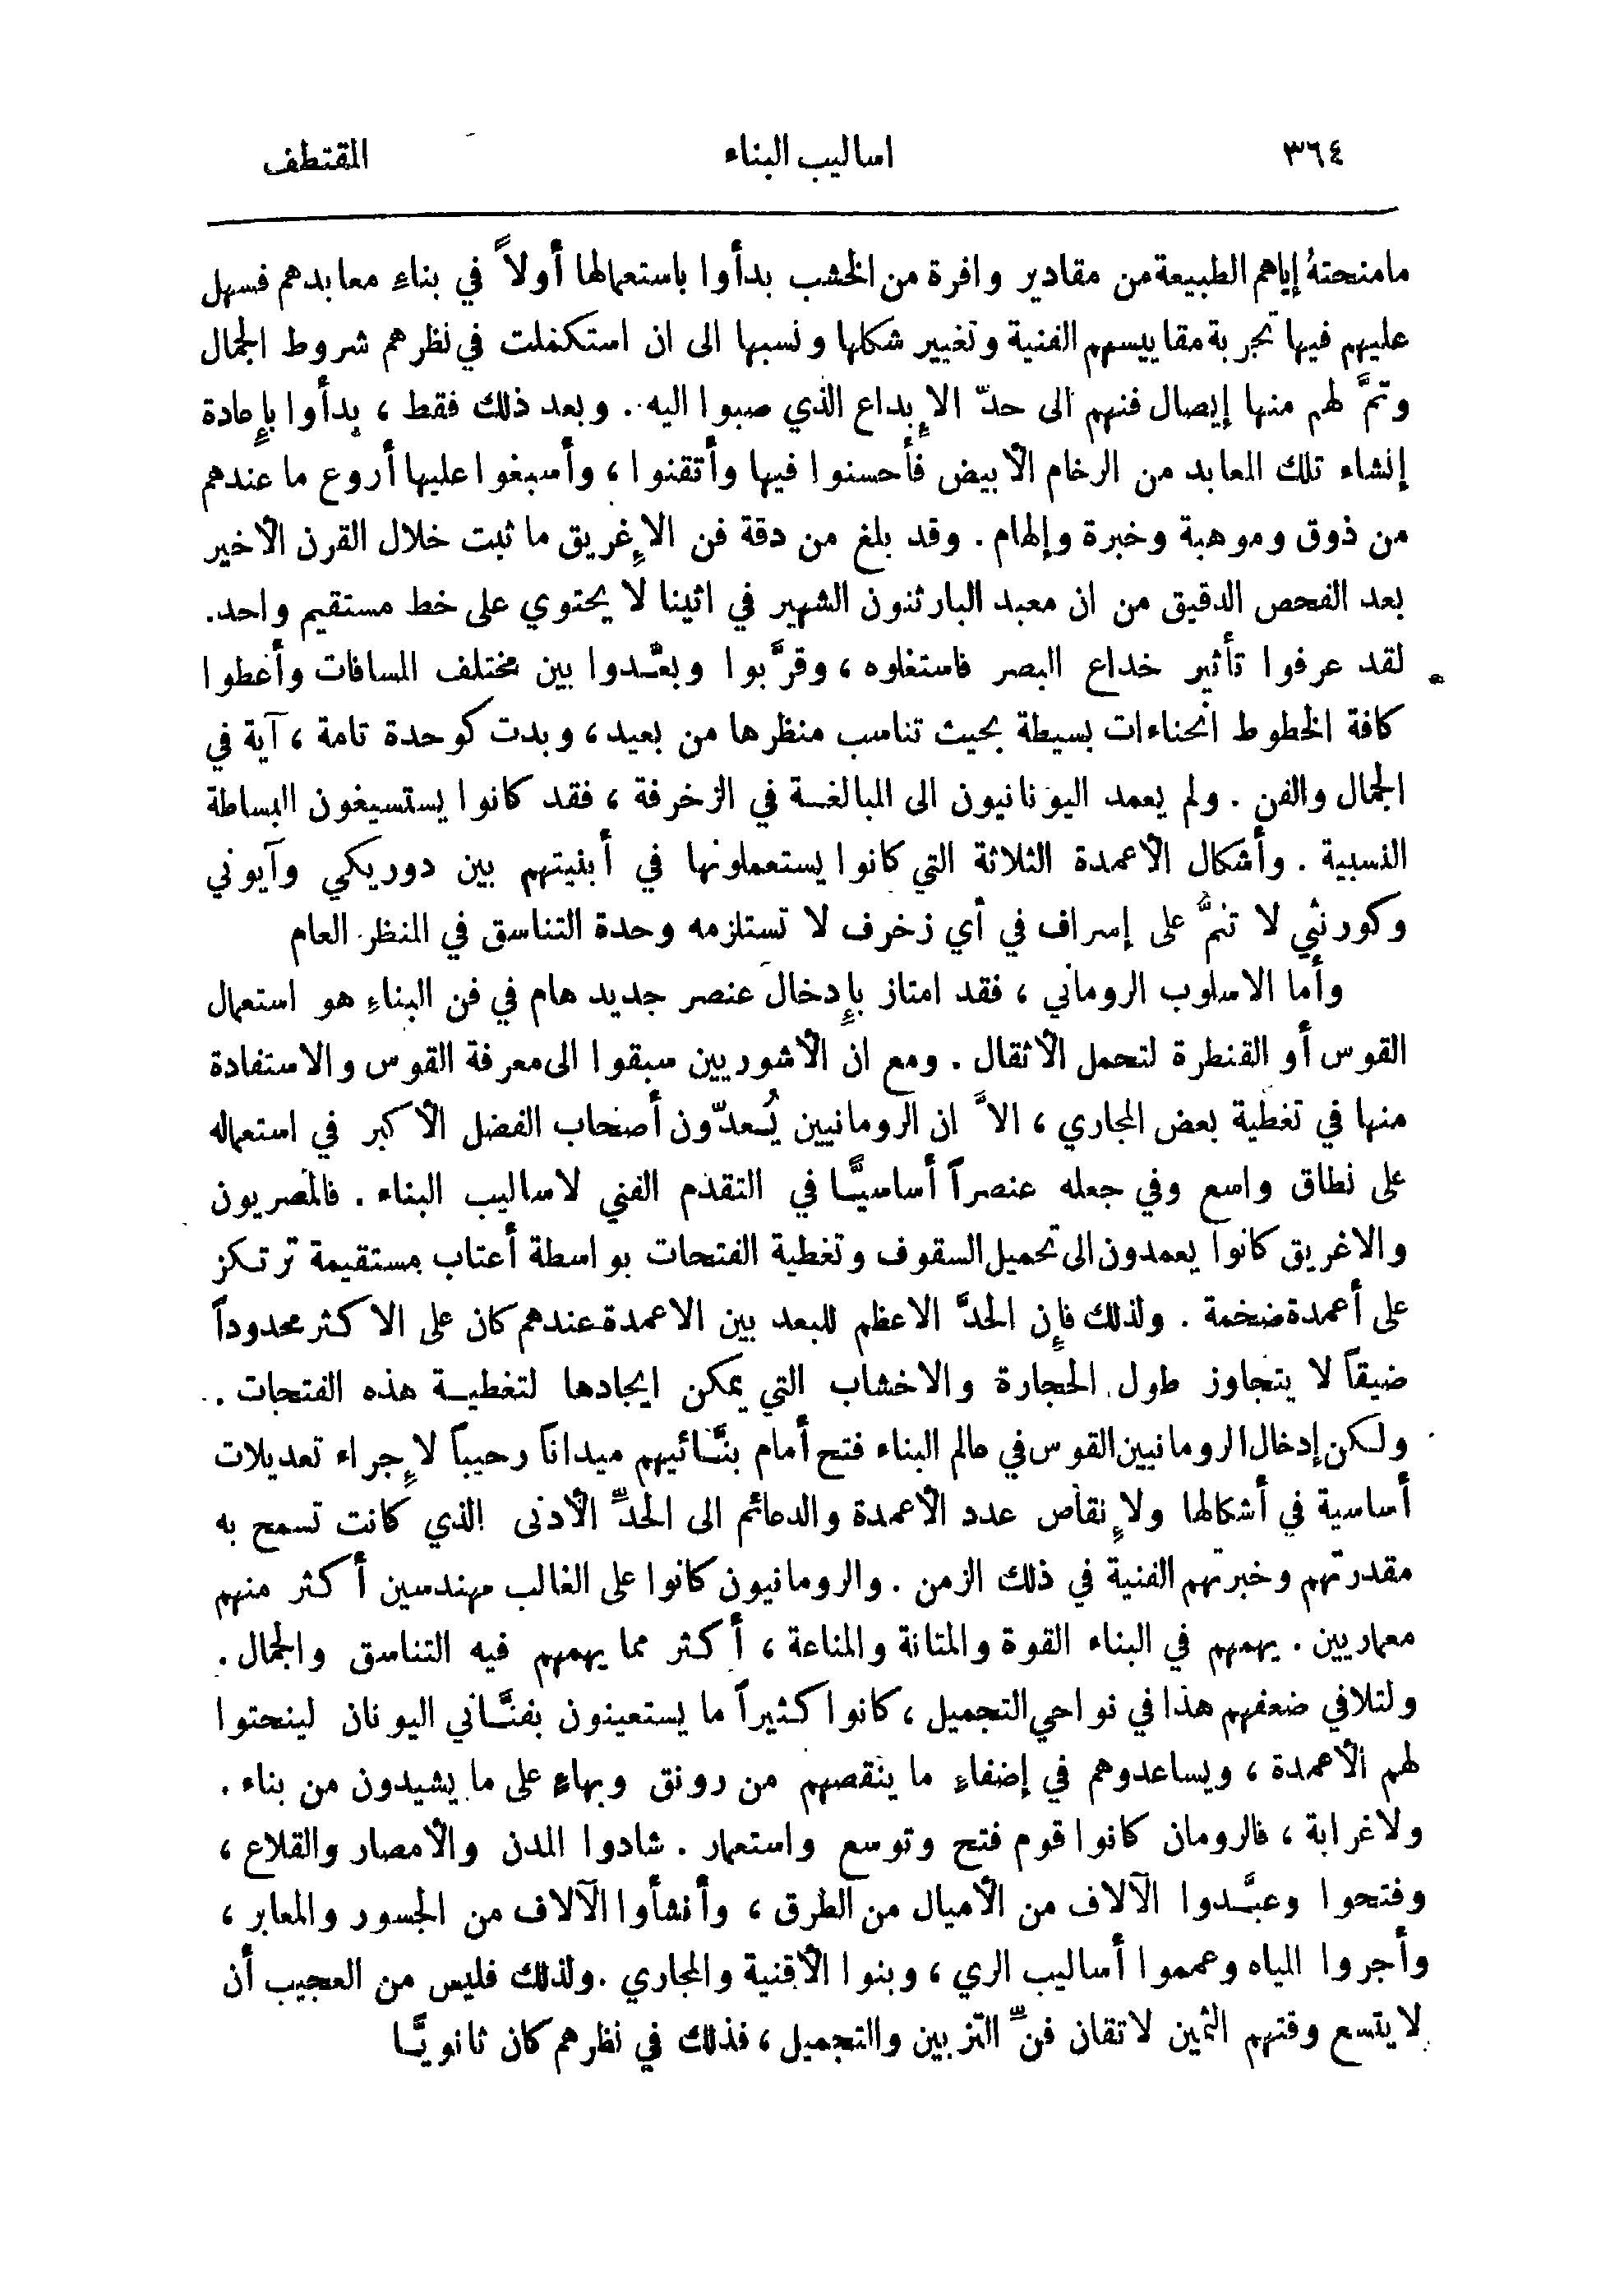 ٣٦٤ اساليب البناء المقتطف
مامنحتهُ إياهم الطبيعة من مقادير وافرة من الخشب بدأوا باستعمالها أولاً في بناءِ معابدهم فسهل
عليهم فيها تجربة مقاييسهم الفنية وتغيير شكلها ونسبها الى ان استكملت في نظرهم شروط الجمال
وتمَّ لهم منها إيصال فنهم الى حدّ الإبداع الذي صبوا اليه. وبعد ذلك فقط ، بدأوا بإعادة
إنشاء تلك المعابد من الرخام الأبيض فأحسنوا فيها وأتقنوا ، وأسبغوا عليها أروع ما عندهم
من ذوق وموهبة وخبرة وإلهام . وقد بلغ من دقة فن الإغريق ما ثبت خلال القرن الأخير
بعد الفحص الدقيق من ان معبد البارثنون الشهير في اثينا لا يحتوي على خط مستقيم واحد.
لقد عرفوا تأثير خداع البصر فاستغلوه ، وقرَّبوا وبعَّدوا بين مختلف المسافات وأعطوا
كافة الخطوط انحناءات بسيطة بحيث تناسب منظرها من بعيد ، وبدت كوحدة تامة ، آية في
الجمال والفن . ولم يعمد اليونانيون الى المبالغة في الزخرفة ، فقد كانوا يستسيغون البساطة
النسبية . وأشكال الأعمدة الثلاثة التي كانوا يستعملونها في أبنيتهم بين دوريكي وآيوني
وكورنثي لا تنمُّ على إسراف في أي زخرف لا تستلزمه وحدة التناسق في المنظر العام
وأما الاسلوب الروماني ، فقد امتاز بإدخال عنصر جديد هام في فن البناءِ هو استعمال
القوس أو القنطرة لتحمل الأثقال . ومع ان الأشوريين سبقوا الى معرفة القوس والاستفادة
منها في تغطية بعض المجاري ، الاَّ ان الرومانيين يُعدّون أصحاب الفضل الأكبر في استعماله
على نطاق واسع وفي جعله عنصراً أساسيًّا في التقدم الفني لاساليب البناء . فالمصريون
والاغريق كانوا يعمدون الى تحميل السقوف وتغطية الفتحات بواسطة أعتاب مستقيمة ترتكز
على أعمدة ضخمة . ولذلك فإن الحدَّ الاعظم للبعد بين الاعمدة عندهم كان على الاكثر محدوداً
ضيقاً لا يتجاوز طول الحجارة والاخشاب التي يمكن ايجادها لتغطية هذه الفتحات .
ولكن إدخال الرومانيين القوس في عالم البناء فتح أمام بنَّائيهم ميداناً رحيباً لإجراء تعديلات
أساسية في أشكالها ولإنقاص عدد الأعمدة والدعائم الى الحدِّ الأدنى الذي كانت تسمح به
مقدرتهم وخبرتهم الفنية في ذلك الزمن . والرومانيون كانوا على الغالب مهندسين أكثر منهم
معماريين . يهمهم في البناء القوة والمتانة والمناعة ، أكثر مما يهمهم فيه التناسق والجمال .
ولتلافي ضعفهم هذا في نواحي التجميل ، كانوا كثيراً ما يستعينون بفنَّاني اليونان لينحتوا
لهم الأعمدة ، ويساعدوهم في إضفاءِ ما ينقصهم من رونق وبهاءٍ على ما يشيدون من بناء .
ولا غرابة ، فالرومان كانوا قوم فتح وتوسع واستعمار . شادوا المدن والأمصار والقلاع ،
وفتحوا وعبَّدوا الآلاف من الأميال من الطرق ، وأنشأوا الآلاف من الجسور والمعابر ،
وأجروا المياه وعمموا أساليب الري ، وبنوا الأقنية والمجاري . ولذلك فليس من العجيب أن
لا يتسع وقتهم الثمين لاتقان فنِّ التزيين والتجميل ، فذلك في نظرهم كان ثانويًّا